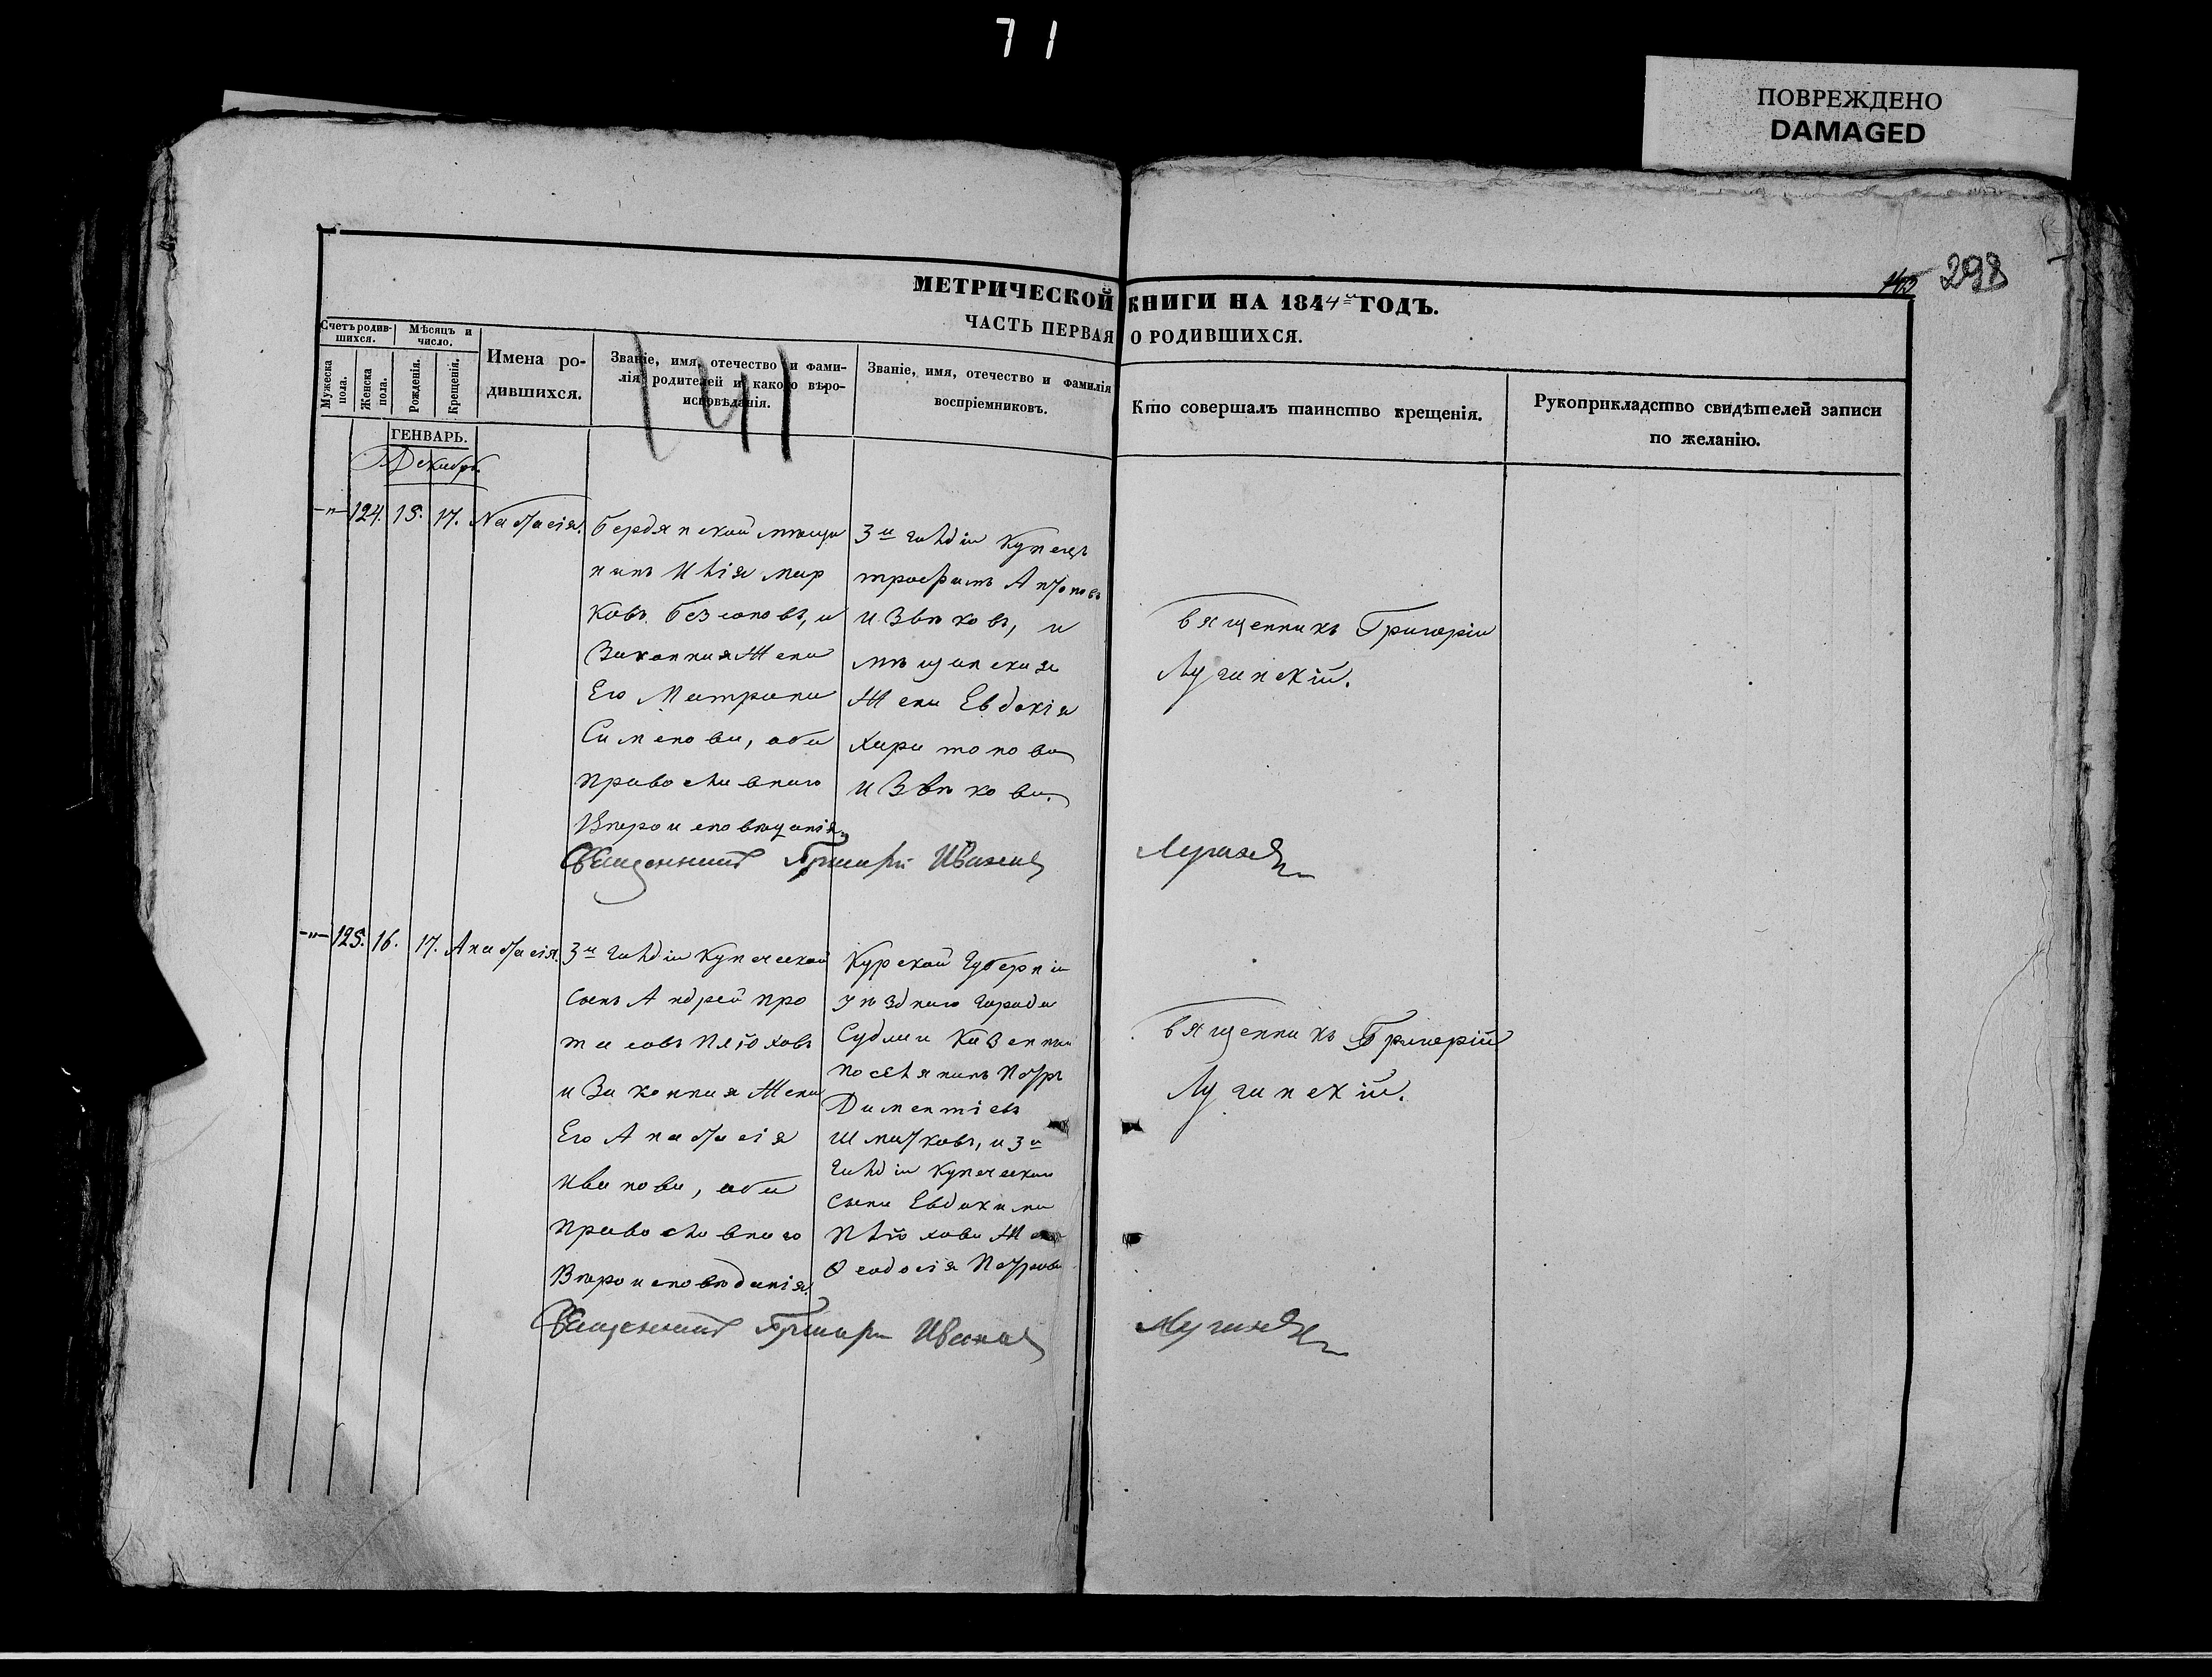 71
ПОВРЕЖДЕНО
DAMAGED
298
МЕТРИЧЕСКОЙ КНИГИ НА 1844й ГОДЪ.
ЧАСТЬ ПЕРВАЯ О РОДИВШИХСЯ.
Счетъ родив-
шихся.
Мужеска
пола.
Женска
пола.
Мѣсяцъ и
число.
Рожденія.
Крещенія.
Имена ро-
дившихся.
Званіе, имя, отечество и фами-
лія родителей и какого вѣро-
исповѣданія.
Званіе, имя, отечество и фамилія
воспріемниковъ.
Кто совершалъ таинство крещенія.
Рукоприкладство свидѣтелей записи
по желанію.
141
ГЕНВАРЬ.
Декабрь.
-"- 124. 15. 17.
Бердянской мѣща
нинъ Илія Мар
ковъ, и
Законная Жена
Его Матрона
Сименова, оба
православнаго
Вѣроисповѣданія
3й гилдіи Купецъ
трофимъ Антоновъ
Извѣковъ, и
мѣщанская
Жена Евдокія
Харитонова
Извѣкова.
Священникъ Григорій
Лучинскій.
Священникъ Григорій
-"- 125. 16. 17. Анастасія.
3й гилдіи Купеческой
Сынъ Андрей Про
тасовъ Плюховъ
и Законная Жена
Его Анастасія
Иванова, оба
православнаго
Вѣроисповѣданія.
Курской Губерніи
Уѣзднаго города
Суджи Казенный
поселянинъ Петръ
Диментіевъ
Шматковъ, и 3й
гилдіи Купеческаго
сына Евдокима
Плюхова Жена
Ѳеодосія Петрова
Священникъ Григорій
Лучинскій.
Священникъ Григорій